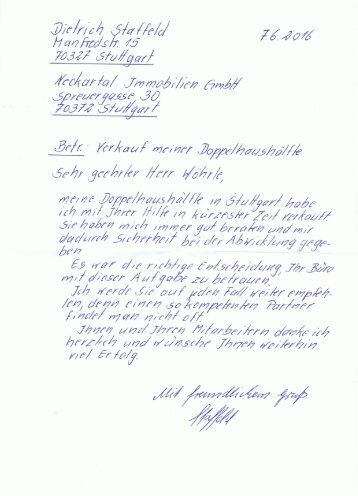 Dietrich Staffeld
Manfredstr. 15
70327 Stuttgart
7.6.2016
Neckartal Immobilien GmbH
Spreuergasse 30
70372 Stuttgart
Betr.: Verkauf meiner Doppelhaushälfte
Sehr geehrter Herr Wöhrle,
meine Doppelhaushälfte in Stuttgart habe
ich mit Ihrer Hilfe in kürzester Zeit verkauft
Sie haben mich immer gut beraten und mir
dadurch Sicherheit bei der Abwicklung gege-
ben
Es war die richtige Entscheidung, Ihr Büro
mit dieser Aufgabe zu betrauen.
Ich werde Sie auf jeden Fall weiter empfeh-
len, denn einen so kompetenten Partner
findet man nicht oft
Ihnen und Ihren Mitarbeitern danke ich
herzlich und wünsche Ihnen weiterhin
viel Erfolg.
Mit freundlichem Gruß
Staffeld